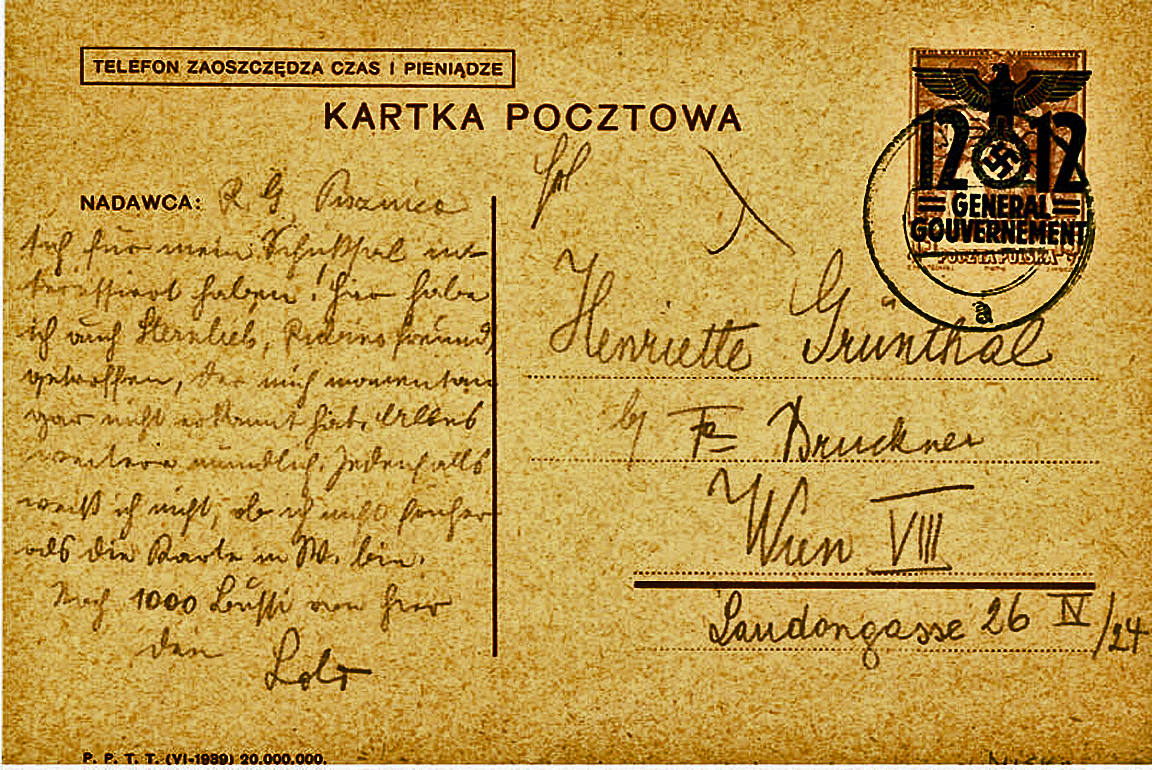 TELEFON ZAOSZCZĘDZA CZAS I PIENIĄDZE
KARTKA POCZTOWA
12 12
GENERAL
GOUVERNEMENT
POCZTA POLSKA
a
NADAWCA: R. G.
sich für mein Schicksal in-
teressiert haben! Hier habe
ich auch
getroffen, der mich momentan
gar nicht erkannt hat. Alles
weitere mündlich. Jedenfalls
weiß ich nicht, ob ich nicht früher
als die Karte in W. bin.
Noch 1000 Bussi von hier
Henriette Grünthal
bei Bruckner
Wien VIII
Laudongasse 26 IV/24
P. P. T. T. (VI-1939) 20.000.000.